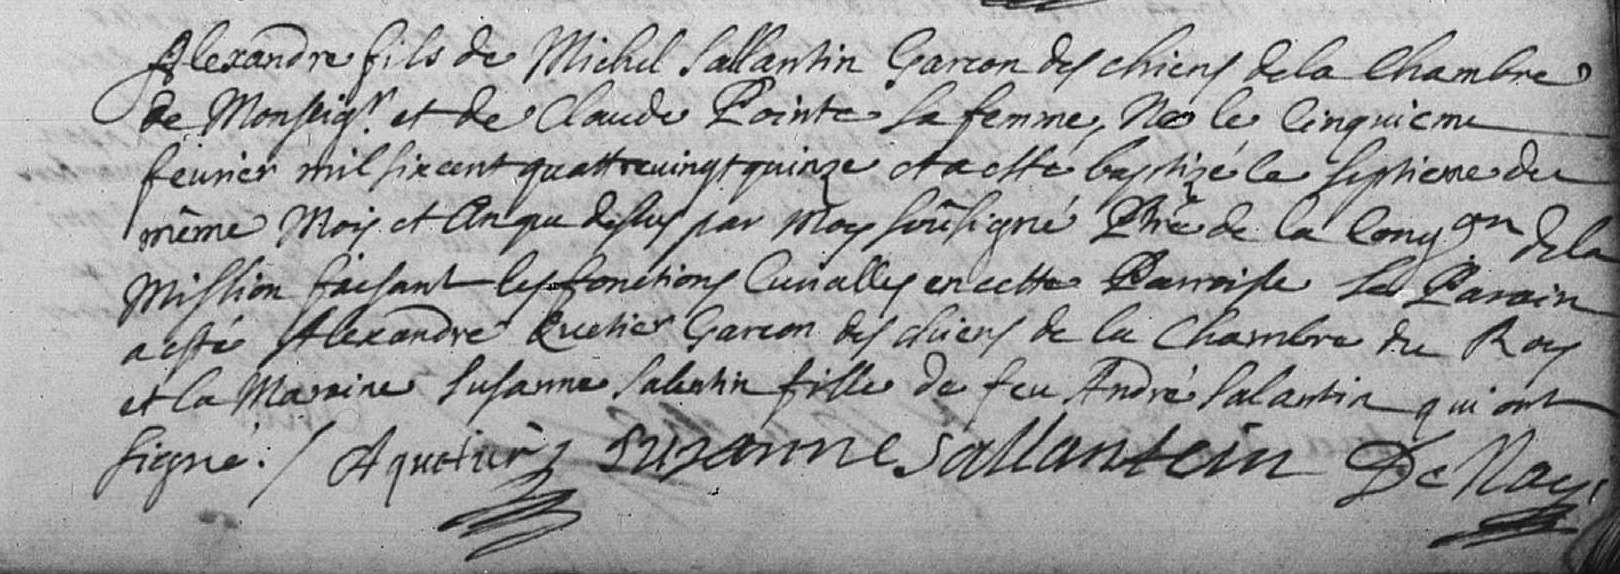 Alexandre fils de Michel Sallantin Garcon des chiens de la Chambre
de Monseigr. et de Claude Pointe Sa femme, Né le Cinquieme
fevrier mil six cent quattrevingt quinze et a esté baptizé le septieme du
même Mois et An que dessus par Moy soûsigné Ptre de la Congon de la
Mission faisant les fonctions Curialles en cette Parroisse Le Parain
a esté Alexandre Quetier Garcon des chiens de la Chambre du Roy
et la Maraine Susanne Salentin fille de feu André Salantin qui ont
signé. / A quetier Suzanne Sallantein De Nay